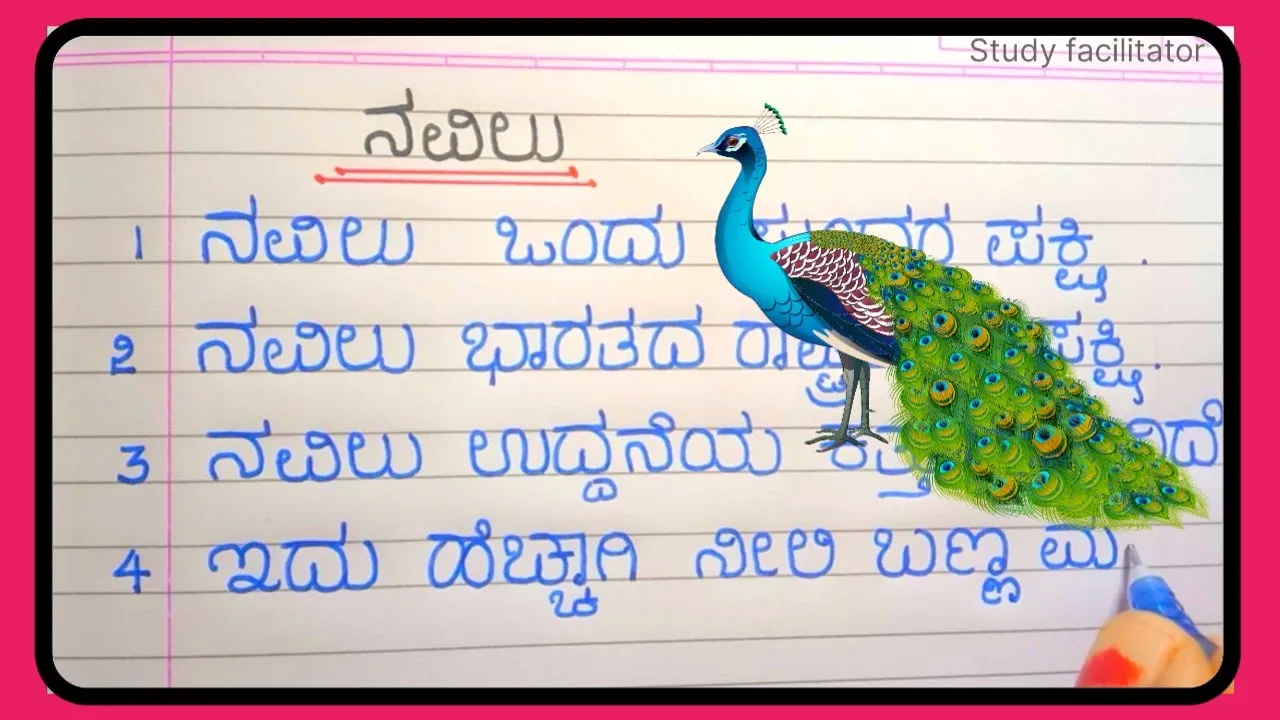 Study facilitator
ನವಿಲು
1 ನವಿಲು ಒಂದು ಪಕ್ಷಿ .
2 ನವಿಲು ಭಾರತದ ರಾಷ್ಟ್ರ ಪಕ್ಷಿ .
3 ನವಿಲು ಉದ್ದನೆಯ
4 ಇದು ಹೆಚ್ಚಾಗಿ ನೀಲಿ ಬಣ್ಣ ಮ